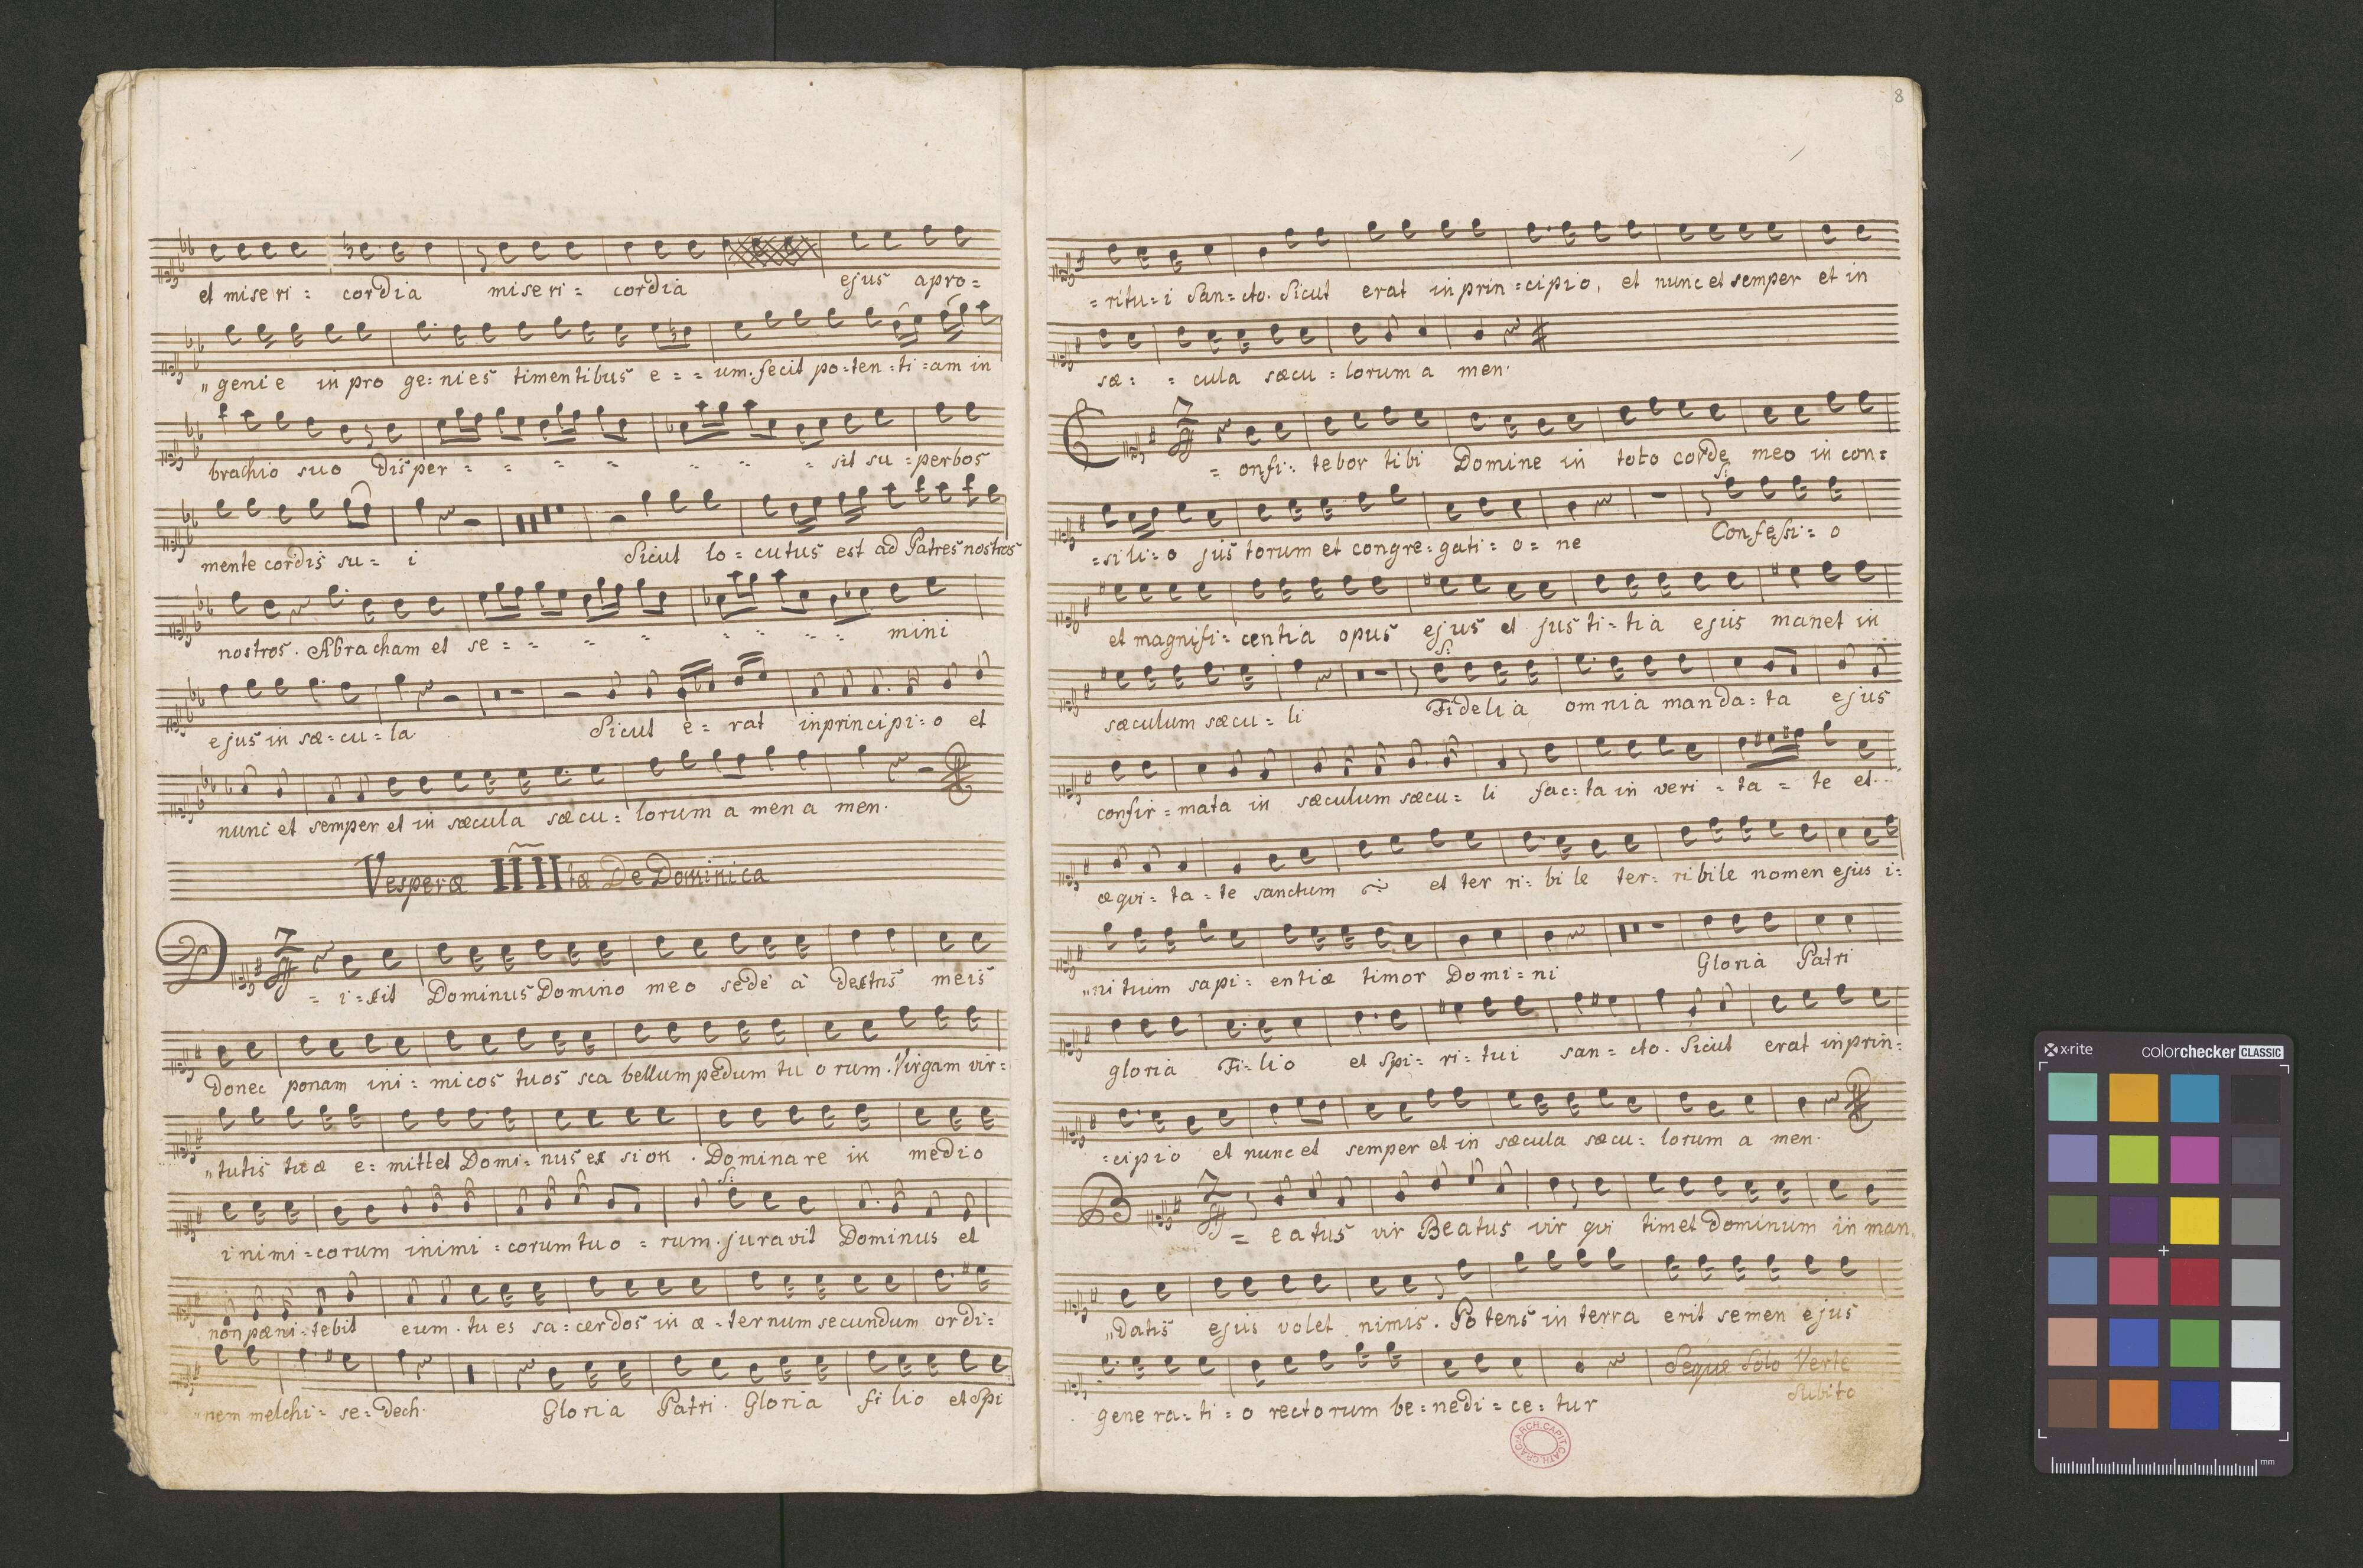 et mise ri = cordia mise ri = cordia ejus apro =
„ genie in pro ge: nies timentibus e = = um. fecit po = ten = ti = am in
brachio suo disper - - - - - - - sit su = perbos
mente cordis su = i Sicut lo = cutus est ad Patres nostros
nostros. Abracham et se = - - - - - - - mini
ejus in sæ = cu = la Sicut e = rat inprincipi = o et
nunc et semper et in sæcula sæcu = lorum a men a men.
Vesperæ IIII tæ De Dominica
D = i = xit Dominus Domino meo sede à dextris meis
Donec ponam ini = micos tuos sca bellum pedum tu o rum. Virgam vir =
„ tutis tuæ e = mittet Domi = nus ex sion. Dominare in medio
S:
inimi = corum inimi = corum tuo = rum. juravit Dominus et
non pæni = tebit eum. tu es sa = cerdos in æ = ternum secundum ordi =
„ nem melchi = se = dech. Gloria Patri. Gloria filio et Spi
8
= ritu = i San = cto. Sicut erat inprin = cipio, et nunc et semper et in
sæ = = cula sæcu = lorum a men.
C = onfi = tebor tibi Domine in toto corde meo in con =
S:
= sili = o justorum et congre = gati = o = ne Confessi = o
et magnifi = centia opus ejus et justi = tia ejus manet in
S:
sæculum sæcu = li Fidelia omnia manda = ta ejus
confir = mata in sæculum sæcu = li fac = ta in veri = ta = te et
æqui = ta = te sanctum et terri = bile ter = ribile nomen ejus i =
„ nitium sapi = entiæ timor Domi = ni Gloria Patri
gloria Fi = lio et Spi = ri = tui san = cto. Sicut erat inprin =
= cipio et nunc et semper et in sæcula sæcu = lorum a men.
B = eatus vir Beatus vir qui timet Dominum in man =
„ datis ejus volet nimis. Potens in terra erit semen ejus
genera = ti = o rectorum be = nedi = ce = tur Seque Solo Verte
Subito
ARCH. CAPIT. CATH.
x-rite colorchecker CLASSIC
mm